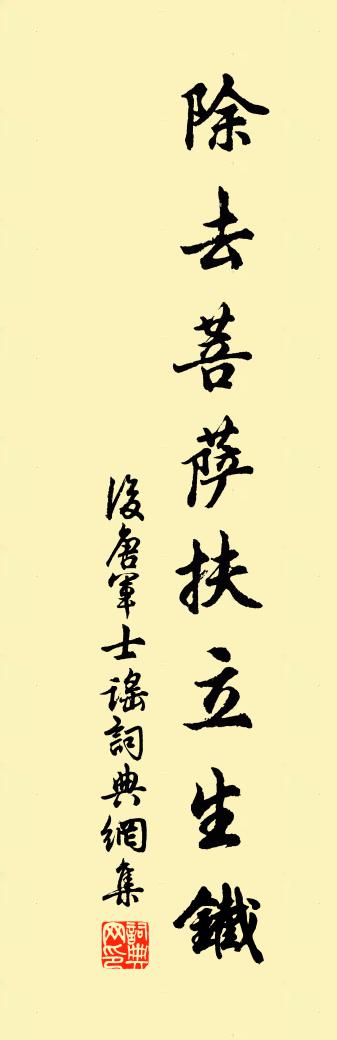 除去菩薩扶立生鐵
後唐軍士謠詞典網集
詞典网印